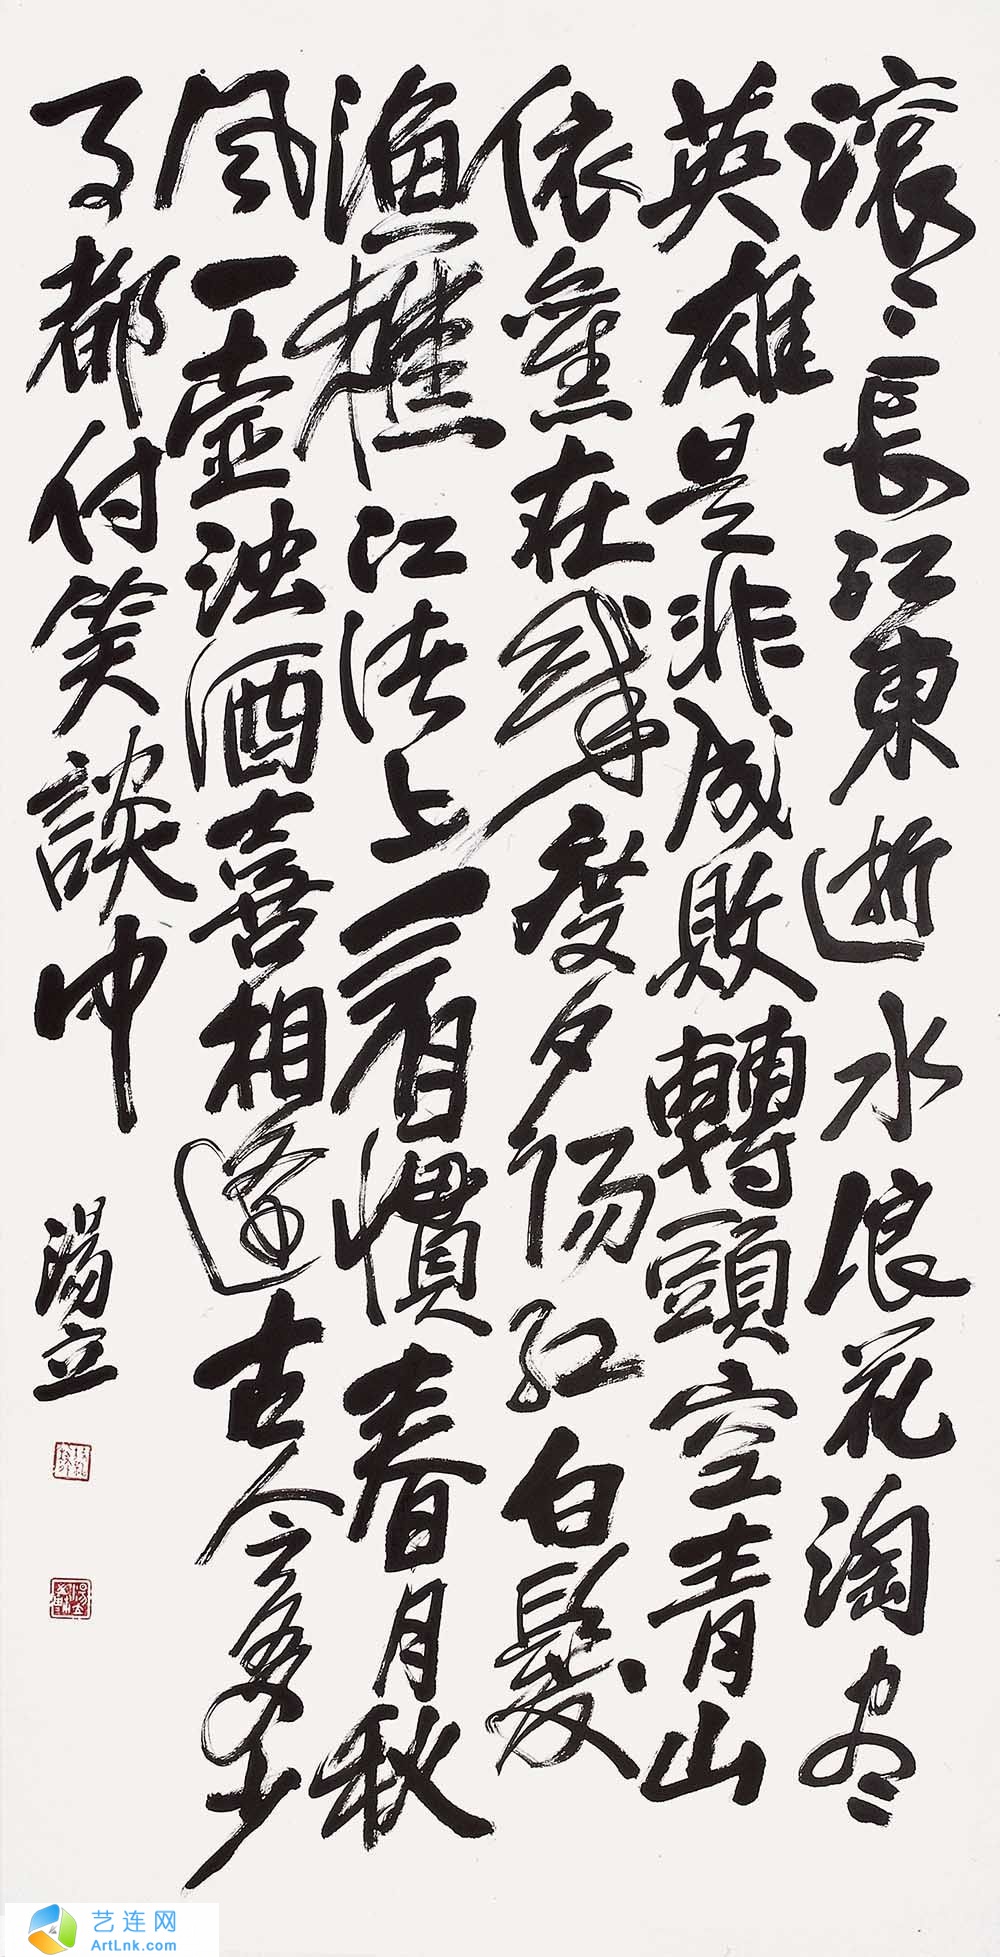 滚〻長江東逝水浪花淘尽
英雄是非成敗轉頭空青山
依舊在幾度夕陽紅白髮
漁樵江渚上看慣春月秋
風一壺浊酒喜相逢古今多少
事都付笑談中
湯立
艺连网
ArtLnk.com